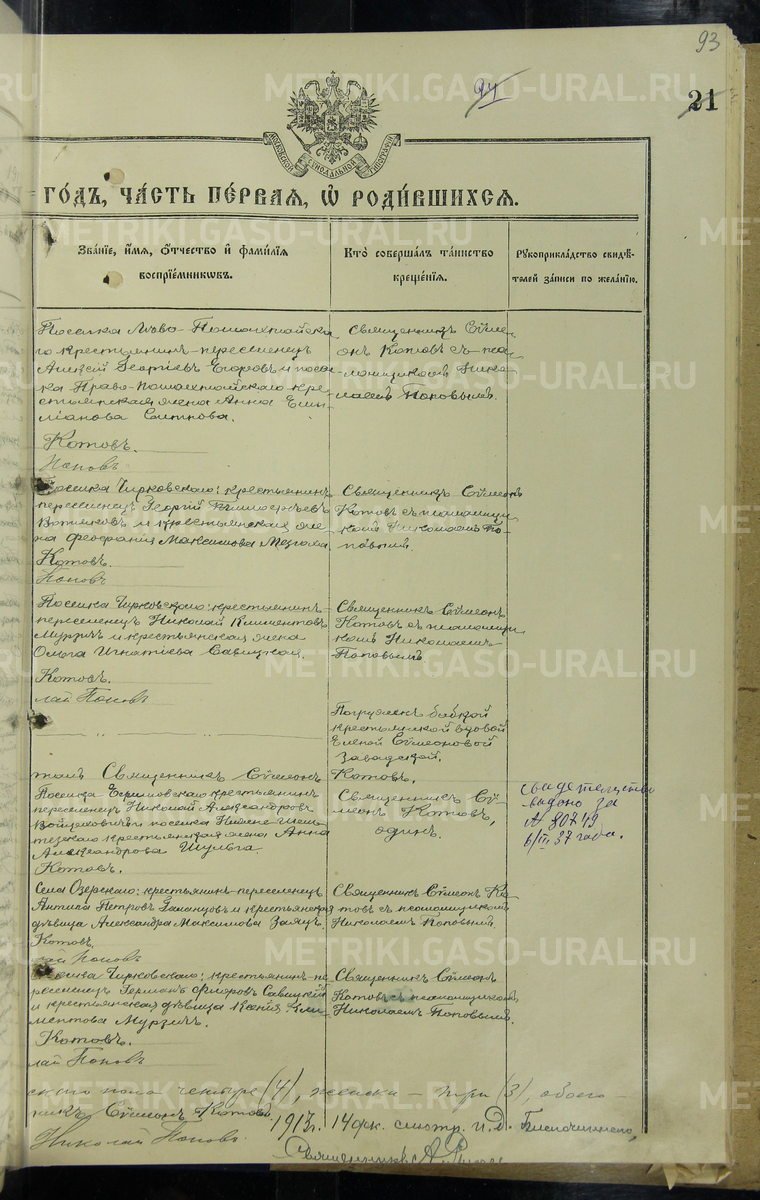 93
94
21
МОСКОВСКОЙ СѴНОДАЛЬНОЙ ТИПОГРАФІИ
ГО́ДЪ, ЧА́СТЬ ПЕ́РВАЯ, Ѡ҆ РОДИ́ВШИХСЯ.
Зва́нїе, и҆́мя, ѻ҆́тчество и҆ фами́лїя
воспрїе́мникѡвъ.
Кто̀ соверша́лъ та́инство
креще́нїя.
Рꙋкоприкла́дство свидѣ́-
телей за́писи по жела́нїю.
Поселка Лѣво-
го крестьянинъ-переселенецъ
Алексѣй Георгіевъ Егоровъ и посел-
ка Право- кре-
стьянская жена Анна Еми-
ліанова
Котовъ.
Поповъ
Священникъ Сѵме-
онъ Котовъ съ пса-
ломщикомъ Нико-
лаемъ Поповымъ.
Поселка Чирковскаго: крестьянинъ
переселенецъ Георгій
и крестьянская же-
на Феофанія Максимова
Котовъ.
Поповъ
Священникъ Сѵмеонъ
Котовъ съ псаломщи-
комъ Николаемъ По-
повымъ.
Поселка Чирковскаго: крестьянин-
переселенецъ Николай Климентовъ
Мурзичъ и крестьянская жена
Ольга Игнатіева Савицкая.
Котовъ.
лай Поповъ
Священникъ Сѵмеонъ
Котовъ съ псаломщи-
комъ Николаемъ
Поповымъ.
Погруженъ бабкой
крестьянской вдовой
Еленой Сѵмеоновой
Завадской.
Котовъ.
талъ Священникъ Сѵмеонъ
Поселка крестьянинъ
переселенецъ Николай Александровъ
Войцеховичъ и поселка Нижне-
крестьянская жена Анна
Александрова Шульга.
Котовъ.
Священникъ Сѵ-
меонъ Котовъ,
одинъ.
свидетельство
выдано за
№ 80749
6/III 37 года.
Села Озерскаго: крестьянинъ-переселенецъ
Антипа Петровъ и крестьянская
дѣвица Александра Максимова Заяцъ.
Котовъ.
лай Поповъ
Священникъ Сѵмеонъ Ко-
товъ съ псаломщикомъ
Николаемъ Поповымъ.
Поселка Чирковскаго: крестьянинъ-пе-
реселенецъ Германъ Савицкій
и крестьянская дѣвица Ксенія Кли-
ментова Мурзичъ.
Котовъ.
лай Поповъ
Священникъ Сѵмеонъ
Котовъ съ псаломщикомъ
Николаемъ Поповымъ.
скаго пола четыре (4), женска - три (3), обоего -
никъ Сѵмеонъ Котовъ
Николай Поповъ.
1917г. 14 фк. смотр. и.д. Благочиннаго,
Священникъ А.
METRIKI.GASO-URAL.RU